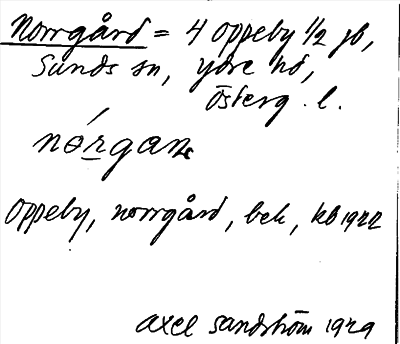 Norrgård = 4 Oppeby 1/2 jb,
Sunds sn, Ydre hd,
Österg. l.
nórgan
Oppeby, norrgård, bek, kb 1922
Axel Sandström 1929